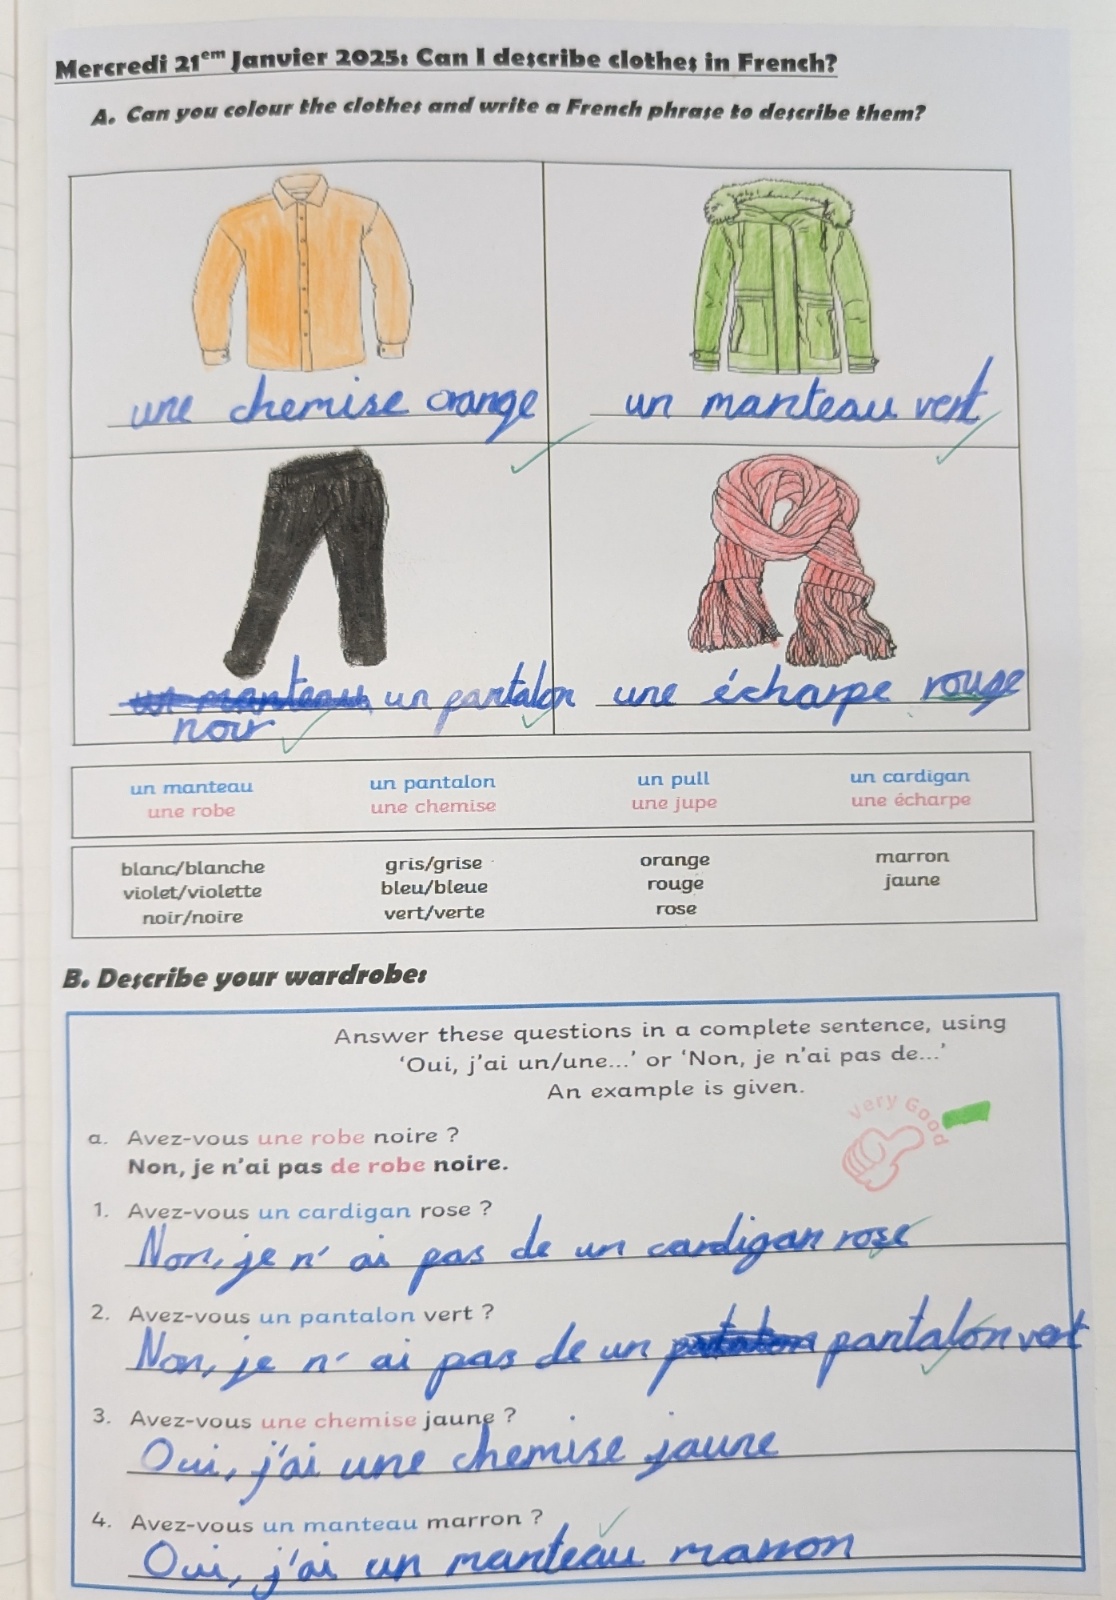 Mercredi 21em Janvier 2025: Can I describe clothes in French?
A. Can you colour the clothes and write a French phrase to describe them?
une chemise orange
un manteau vert
un manteau un pantalon
noir
une écharpe rouge
un manteau un pantalon un pull un cardigan
une robe une chemise une jupe une écharpe
blanc/blanche gris/grise orange marron
violet/violette bleu/bleue rouge jaune
noir/noire vert/verte rose
B. Describe your wardrobe:
Answer these questions in a complete sentence, using
'Oui, j'ai un/une...' or 'Non, je n'ai pas de...'
An example is given.
Very Good
a. Avez-vous une robe noire ?
Non, je n'ai pas de robe noire.
1. Avez-vous un cardigan rose ?
Non, je n' ai pas de un cardigan rose
2. Avez-vous un pantalon vert ?
Non, je n' ai pas de un pantalon vert
3. Avez-vous une chemise jaune ?
Oui, j'ai une chemise jaune
4. Avez-vous un manteau marron ?
Oui, j'ai un manteau marron